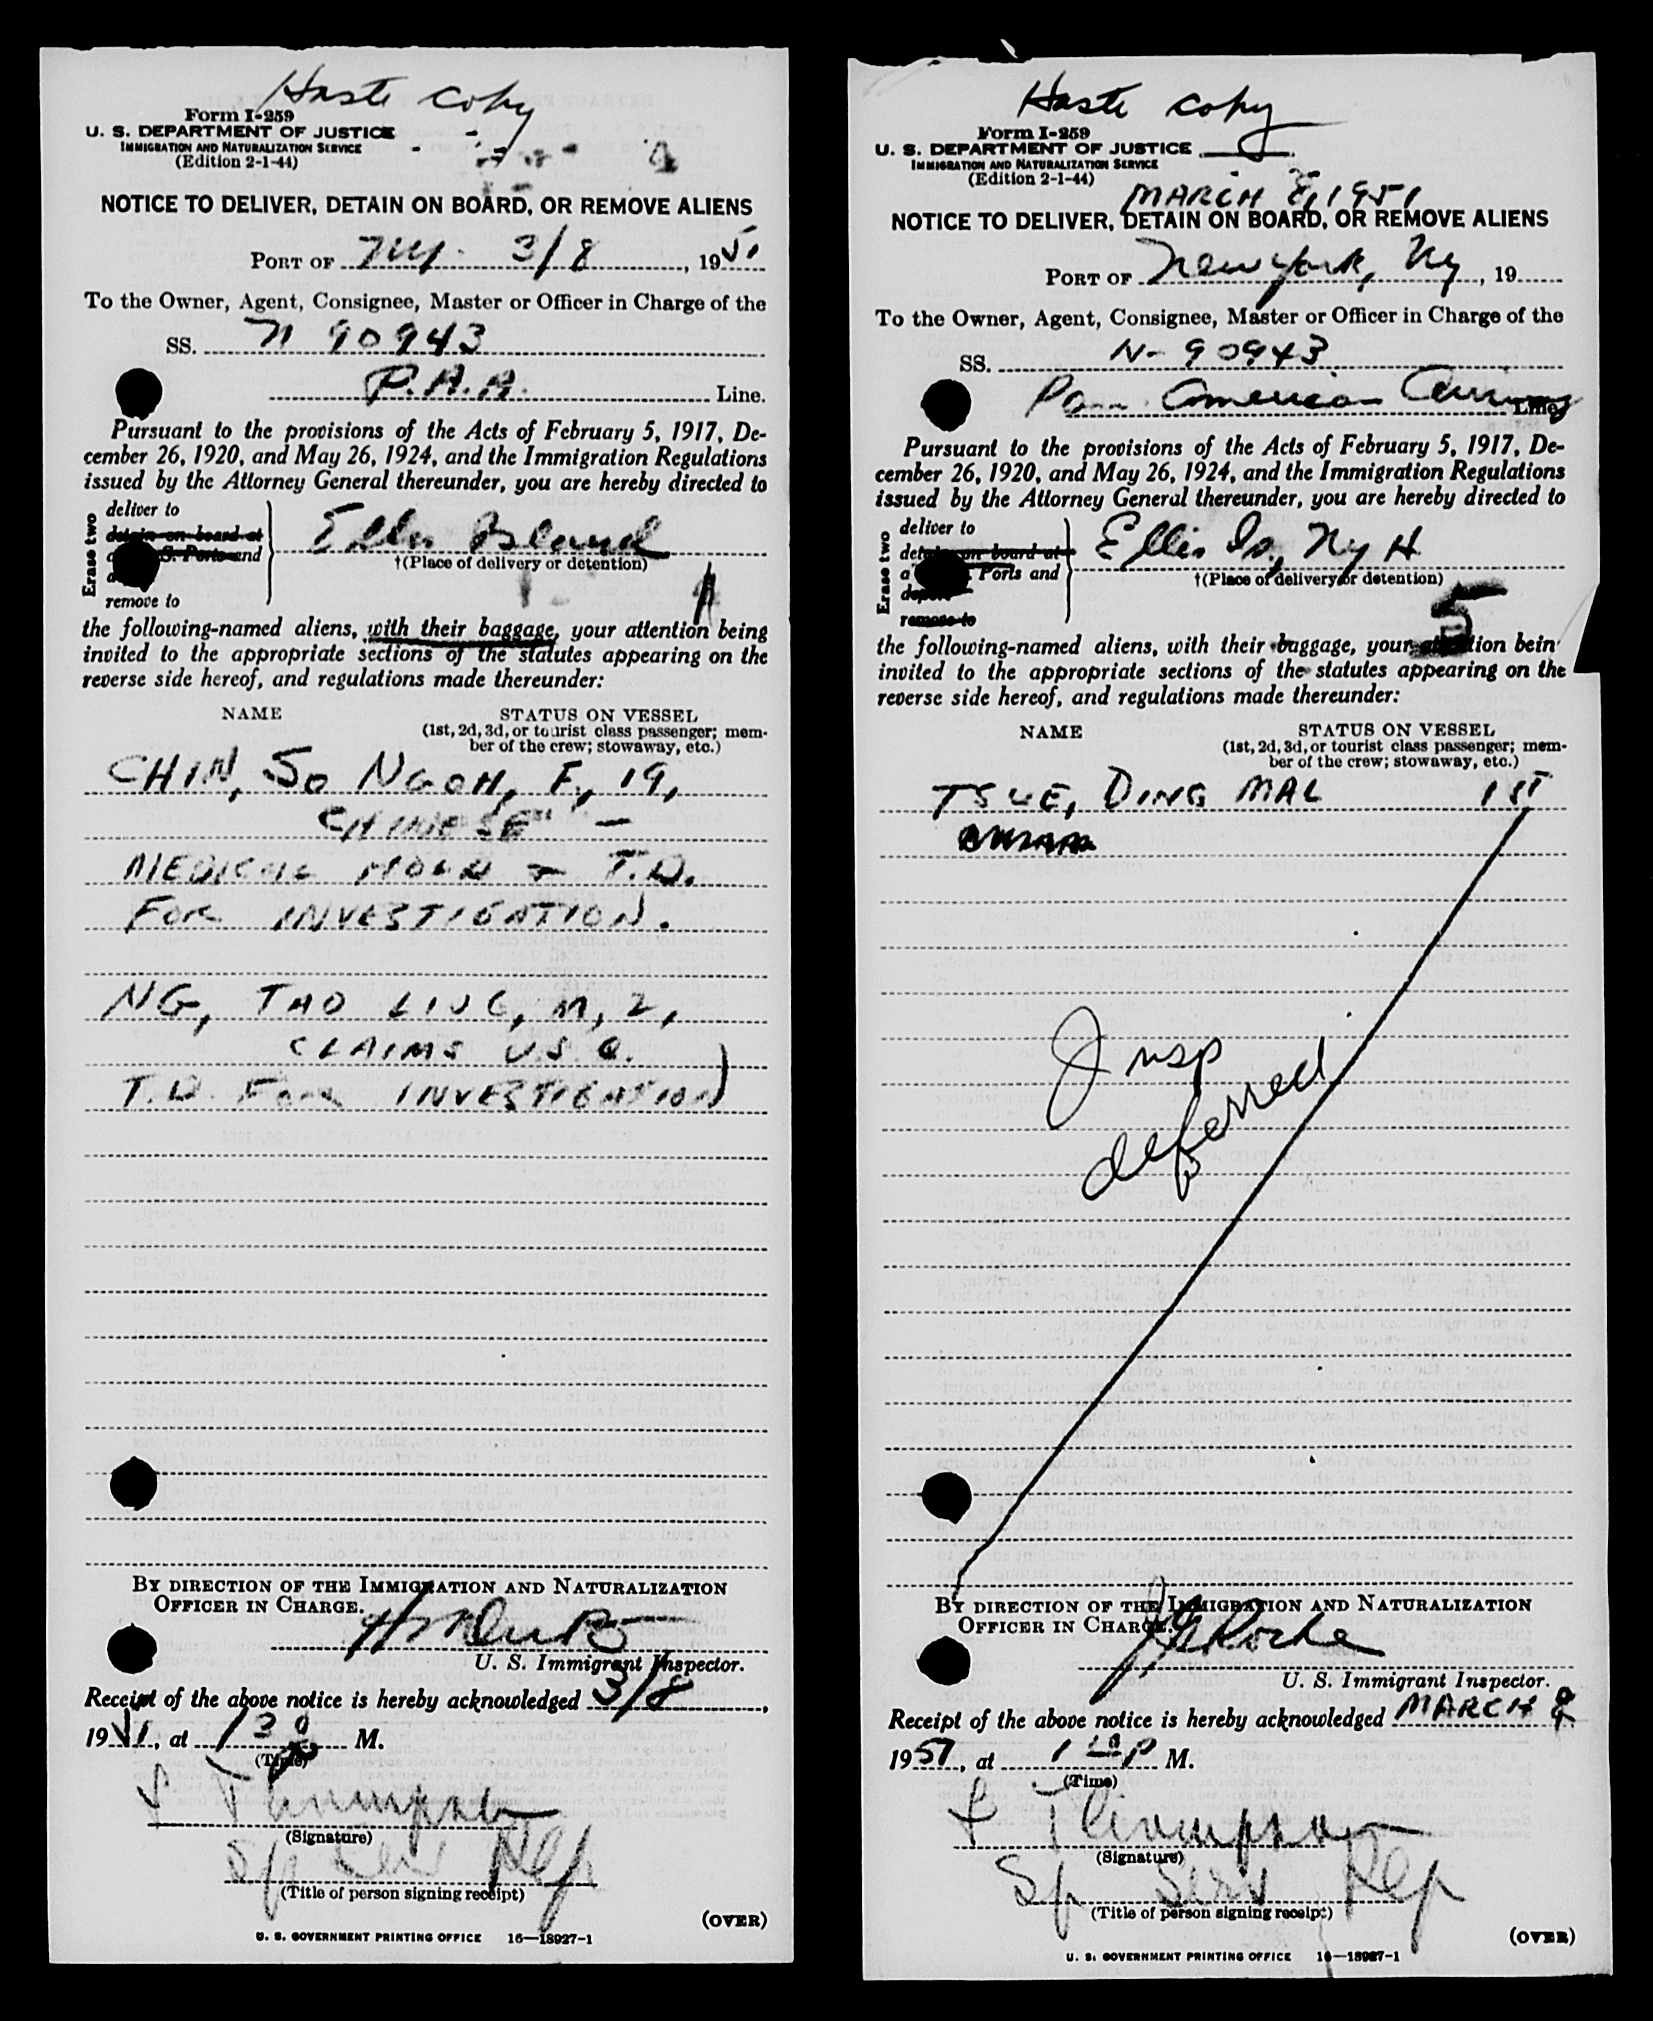 Haste copy
Form I-259
U. S. DEPARTMENT OF JUSTICE
IMMIGRATION AND NATURALIZATION SERVICE
(Edition 2-1-44)
NOTICE TO DELIVER, DETAIN ON BOARD, OR REMOVE ALIENS
PORT OF NY 3/8, 1951
To the Owner, Agent, Consignee, Master or Officer in Charge of the
SS. N 90943
P.A.A. Line.
Pursuant to the provisions of the Acts of February 5, 1917, De-
cember 26, 1920, and May 26, 1924, and the Immigration Regulations
issued by the Attorney General thereunder, you are hereby directed to
Erase two
deliver to
detain on board at
S. Ports and
remove to
Ellis Island
†(Place of delivery or detention)
the following-named aliens, with their baggage, your attention being
invited to the appropriate sections of the statutes appearing on the
reverse side hereof, and regulations made thereunder:
NAME STATUS ON VESSEL
(1st, 2d, 3d, or tourist class passenger; mem-
ber of the crew; stowaway, etc.)
CHIN, SO NGOH, F, 19,
CHINESE -
MEDICAL HOLD & T.D.
FOR INVESTIGATION.
NG, TAO LIUC, M, 2,
CLAIMS U.S.C.
T.D. FOR INVESTIGATION
BY DIRECTION OF THE IMMIGRATION AND NATURALIZATION
OFFICER IN CHARGE.
U. S. Immigrant Inspector.
Receipt of the above notice is hereby acknowledged 3/8,
1951, at M.
(Time)
Thompson
(Signature)
Sp Serv Rep
(Title of person signing receipt)
(OVER)
U. S. GOVERNMENT PRINTING OFFICE 16—18927-1
Haste copy
Form I-259
U. S. DEPARTMENT OF JUSTICE
IMMIGRATION AND NATURALIZATION SERVICE
(Edition 2-1-44)
MARCH 8, 1951
NOTICE TO DELIVER, DETAIN ON BOARD, OR REMOVE ALIENS
PORT OF New York, Ny, 19
To the Owner, Agent, Consignee, Master or Officer in Charge of the
SS. N-90943
Pan American Airways Line.
Pursuant to the provisions of the Acts of February 5, 1917, De-
cember 26, 1920, and May 26, 1924, and the Immigration Regulations
issued by the Attorney General thereunder, you are hereby directed to
Erase two
deliver to
detain on board at
Ports and
deport
remove to
Ellis Is, Ny H
†(Place of delivery or detention)
5
the following-named aliens, with their baggage, your attention bein
invited to the appropriate sections of the statutes appearing on the
reverse side hereof, and regulations made thereunder:
NAME STATUS ON VESSEL
(1st, 2d, 3d, or tourist class passenger; mem-
ber of the crew; stowaway, etc.)
TSUE, DING MAL 1ST
Insp
deferred
BY DIRECTION OF THE IMMIGRATION AND NATURALIZATION
OFFICER IN CHARGE.
Roche
U. S. Immigrant Inspector.
Receipt of the above notice is hereby acknowledged MARCH 8
1951, at M.
(Time)
Thompson
(Signature)
Sp Serv Rep
(Title of person signing receipt)
(OVER)
U. S. GOVERNMENT PRINTING OFFICE 16—18927-1